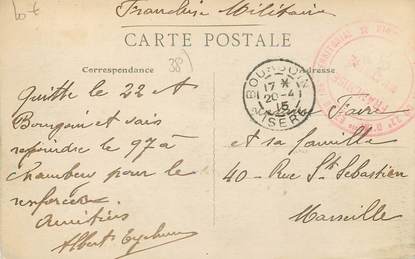 10 €
Franchise Militaire
CARTE POSTALE
Correspondance
38
Adresse
BOURGOIN
17 * 20-4 15
ISERE
Quitte le 22 d
Bourgoin et vais
rejoindre le 97 à
Chambery pour le
renforcer.
Amitiés
Albert
Faure
et sa famille
40 - Rue St Sébastien
Marseille